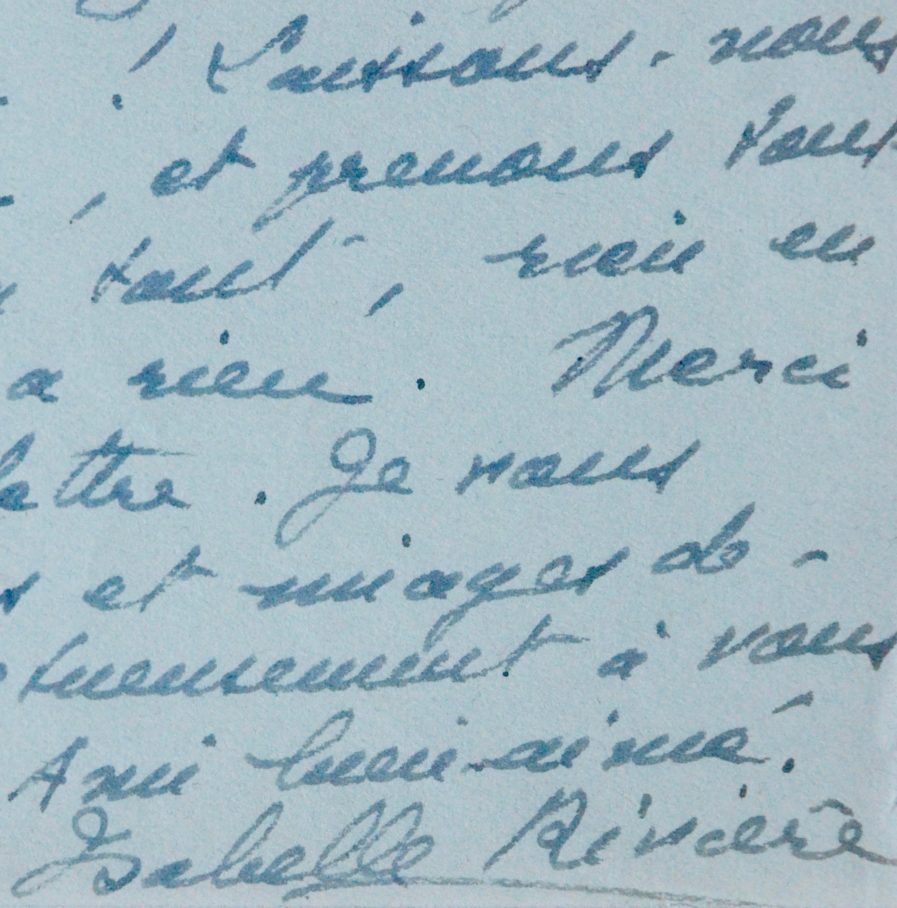 ! Laissons-nous
, et prenons tout
tout, rien en
a rien. Merci
lettre. Je vous
et nuages de-
tueusement à vous
Ami bien-aimé.
Isabelle Rivière